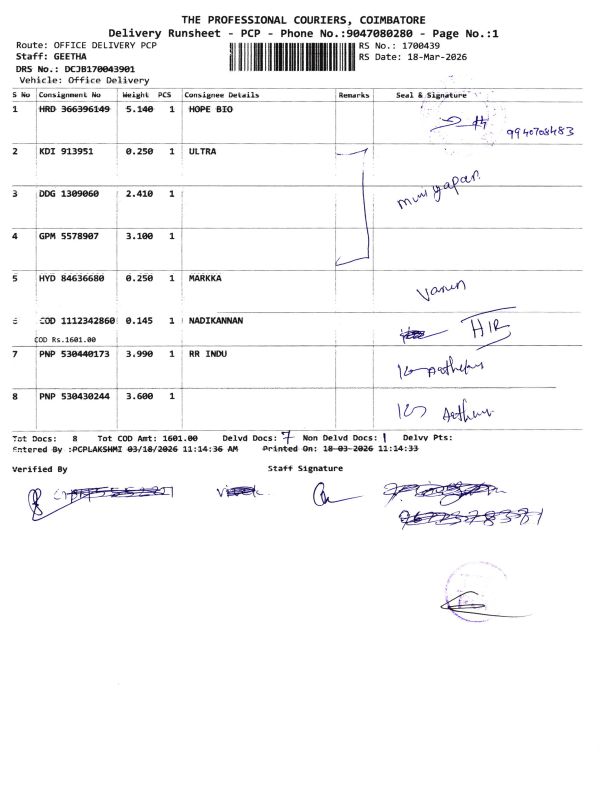 THE PROFESSIONAL COURIERS, COIMBATORE
Delivery Runsheet - PCP - Phone No.:9047080280 - Page No.:1
Route: OFFICE DELIVERY PCP RS No.: 1700439
Staff: GEETHA RS Date: 18-Mar-2026
DRS No.: DCJB170043901
Vehicle: Office Delivery
S No Consignment No Weight PCS Consignee Details Remarks Seal & Signature
1 HRD 366396149 5.140 1 HOPE BIO
9940708483
2 KDI 913951 0.250 1 ULTRA
3 DDG 1309060 2.410 1
4 GPM 5578907 3.100 1
5 HYD 84636680 0.250 1 MARKKA
Varun
COD 1112342860 0.145 1 NADIKANNAN
COD Rs.1601.00
7 PNP 530440173 3.990 1 RR INDU
8 PNP 530430244 3.600 1
Tot Docs: 8 Tot COD Amt: 1601.00 Delvd Docs: 7 Non Delvd Docs: 1 Delvy Pts:
Entered By :PCPLAKSHMI 03/18/2026 11:14:36 AM Printed On: 18-03-2026 11:14:33
Verified By Staff Signature